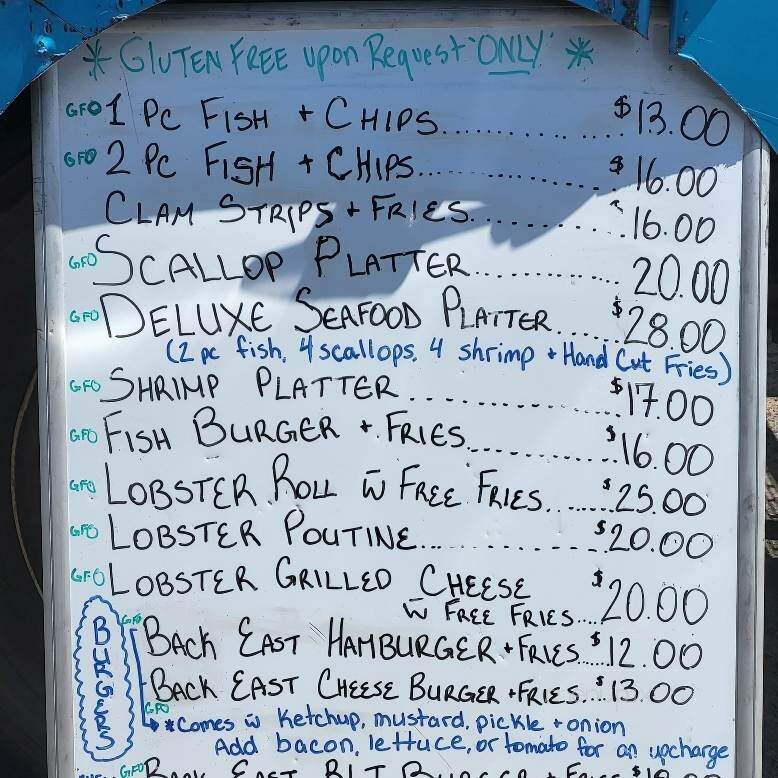 * GLUTEN FREE upon Request "ONLY" *
GFO 1 PC FISH + CHIPS.................. $13.00
GFO 2 PC FISH + CHIPS................ $16.00
CLAM STRIPS + FRIES.............. $16.00
GFO SCALLOP PLATTER............. 20.00
GFO DELUXE SEAFOOD PLATTER...... $28.00
(2 pc fish, 4 scallops, 4 shrimp + Hand Cut Fries)
GFO SHRIMP PLATTER............... $17.00
GFO FISH BURGER + FRIES............ $16.00
GFO LOBSTER ROLL w̄ FREE FRIES......... $25.00
GFO LOBSTER POUTINE............... $20.00
GFO LOBSTER GRILLED CHEESE
w̄ FREE FRIES..... $20.00
BURGERS
GFO BACK EAST HAMBURGER + FRIES..... $12.00
BACK EAST CHEESE BURGER + FRIES.... $13.00
GFO
*Comes w̄ Ketchup, mustard, pickle + onion
Add bacon, lettuce, or tomato for an upcharge
GFO BACK EAST BLT BURGER + FRIES